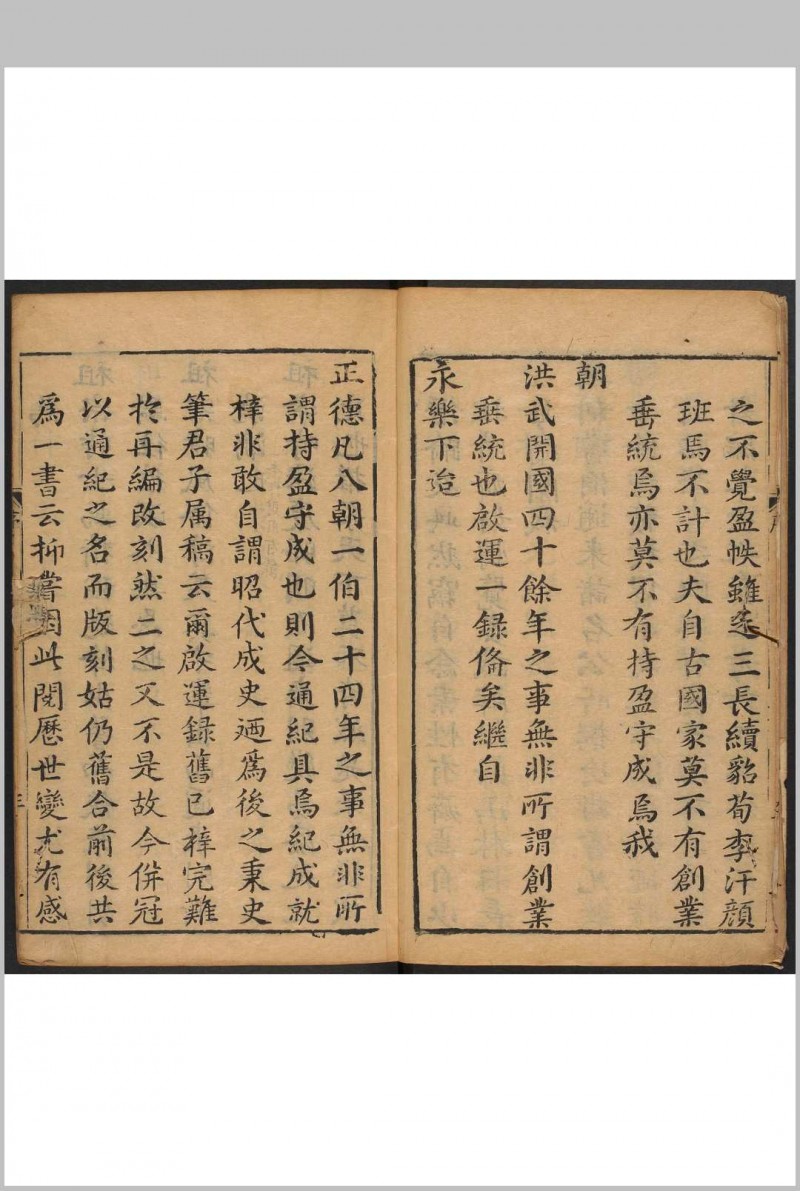 之不覺盈帙雖迹三長續貂荀李汗顔
班馬不計也夫自古國家莫不有創業
垂統焉亦莫不有持盈守成焉我
朝
洪武開國四十餘年之事無非所謂創業
垂統也啟運一録俻矣繼自
永樂下迨
正德凡八朝一伯二十四年之事無非所
謂持盈守成也則今通紀具焉紀成就
梓非敢自謂昭代成史廼爲後之秉史
筆君子属稿云爾啟運録舊已梓完難
扵再編改刻然二之又不是故今併冠
以通紀之名而版刻姑仍舊合前後共
爲一書云抑嘗因此閱歷世變尤有感